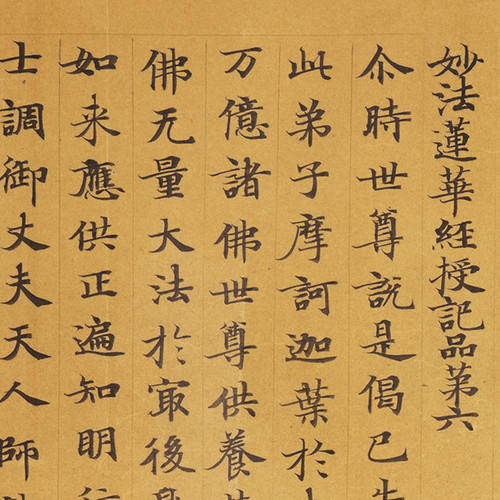 妙法蓮華經授記品第六
尒時世尊說是偈已
此弟子摩訶迦葉於
万億諸佛世尊供養
佛无量大法於㝡後
如来應供正遍知明
士調御丈夫天人師